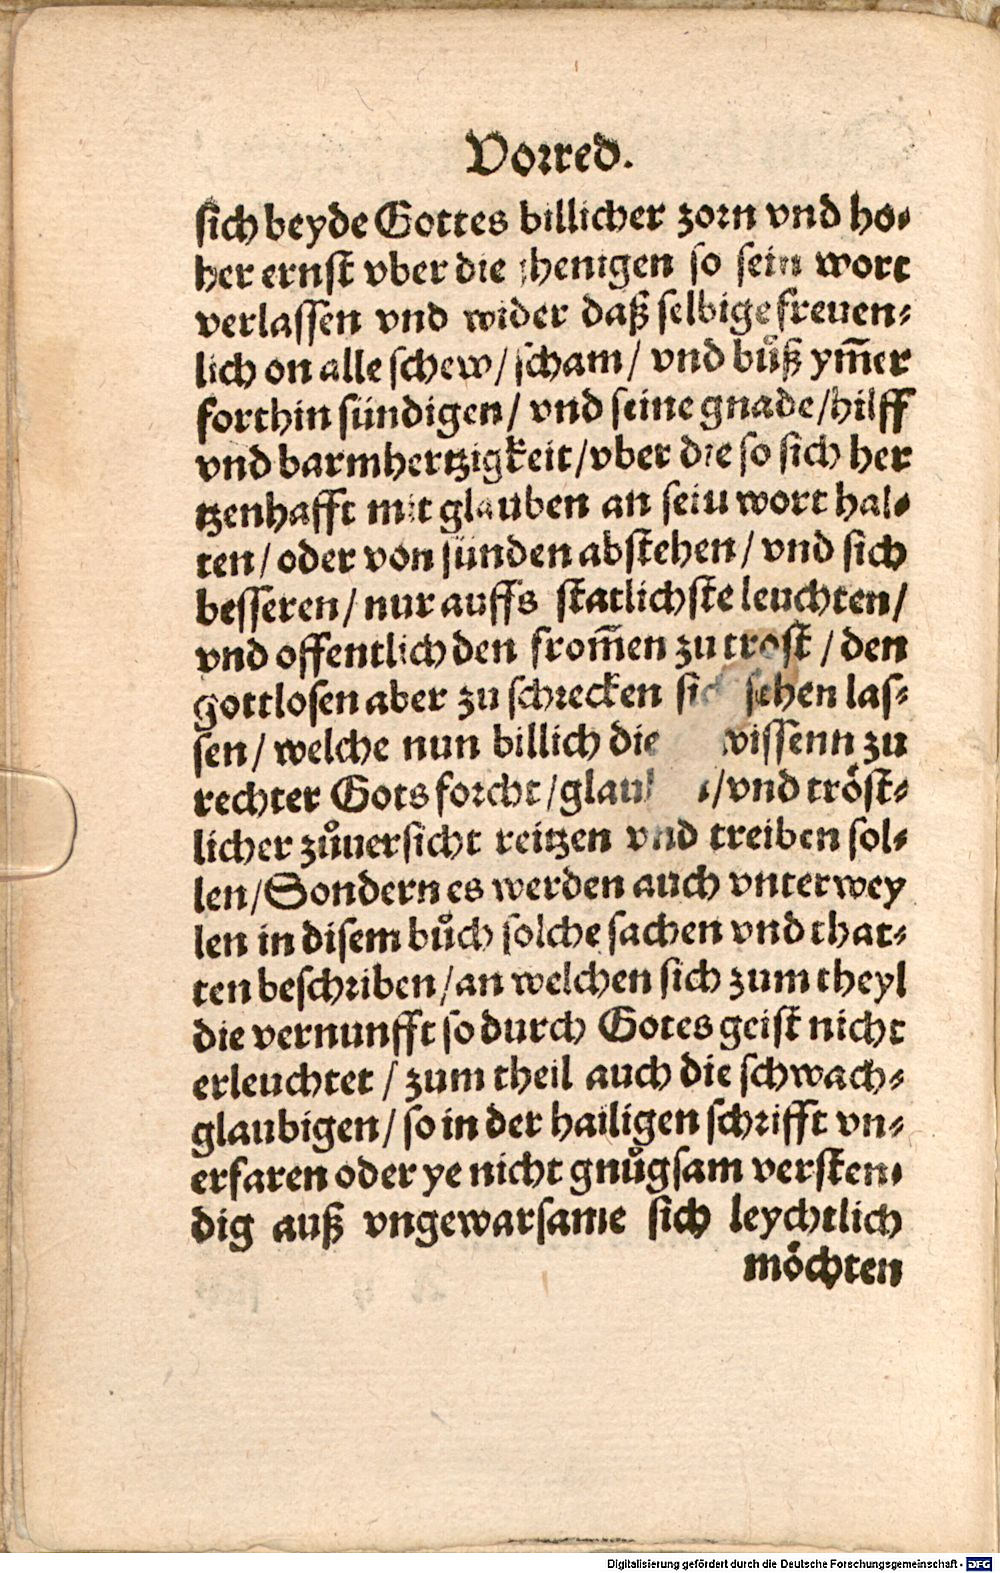 Vorred.
sich beyde Gottes billicher zorn vnd ho-
her ernst vber die jhenigen so sein wort
verlassen vnd wider daß selbige freuen-
lich on alle schew/ scham/ vnd bůß ym̄er
forthin sündigen/ vnd seine gnade/hilff
vnd barmhertzigkeit/vber die so sich her
tzenhafft mit glauben an seiu wort hal-
ten/ oder von sünden abstehen/ vnd sich
besseren/ nur auffs statlichste leuchten/
vnd offentlich den from̄en zu trost / den
gottlosen aber zu schrecken sich sehen las-
sen/ welche nun billich die wissenn zu
rechter Gots forcht/ /vnd tröst-
licher zůuersicht reitzen vnd treiben sol-
len/Sondern es werden auch vnterwey
len in disem bůch solche sachen vnd that-
ten beschriben/an welchen sich zum theyl
die vernunfft so durch Gotes geist nicht
erleuchtet / zum theil auch die schwach-
glaubigen/ so in der hailigen schrifft vn-
erfaren oder ye nicht gnůgsam versten-
dig auß vngewarsame sich leychtlich
möchten
Digitalisierung gefördert durch die Deutsche Forschungsgemeinschaft - DFG